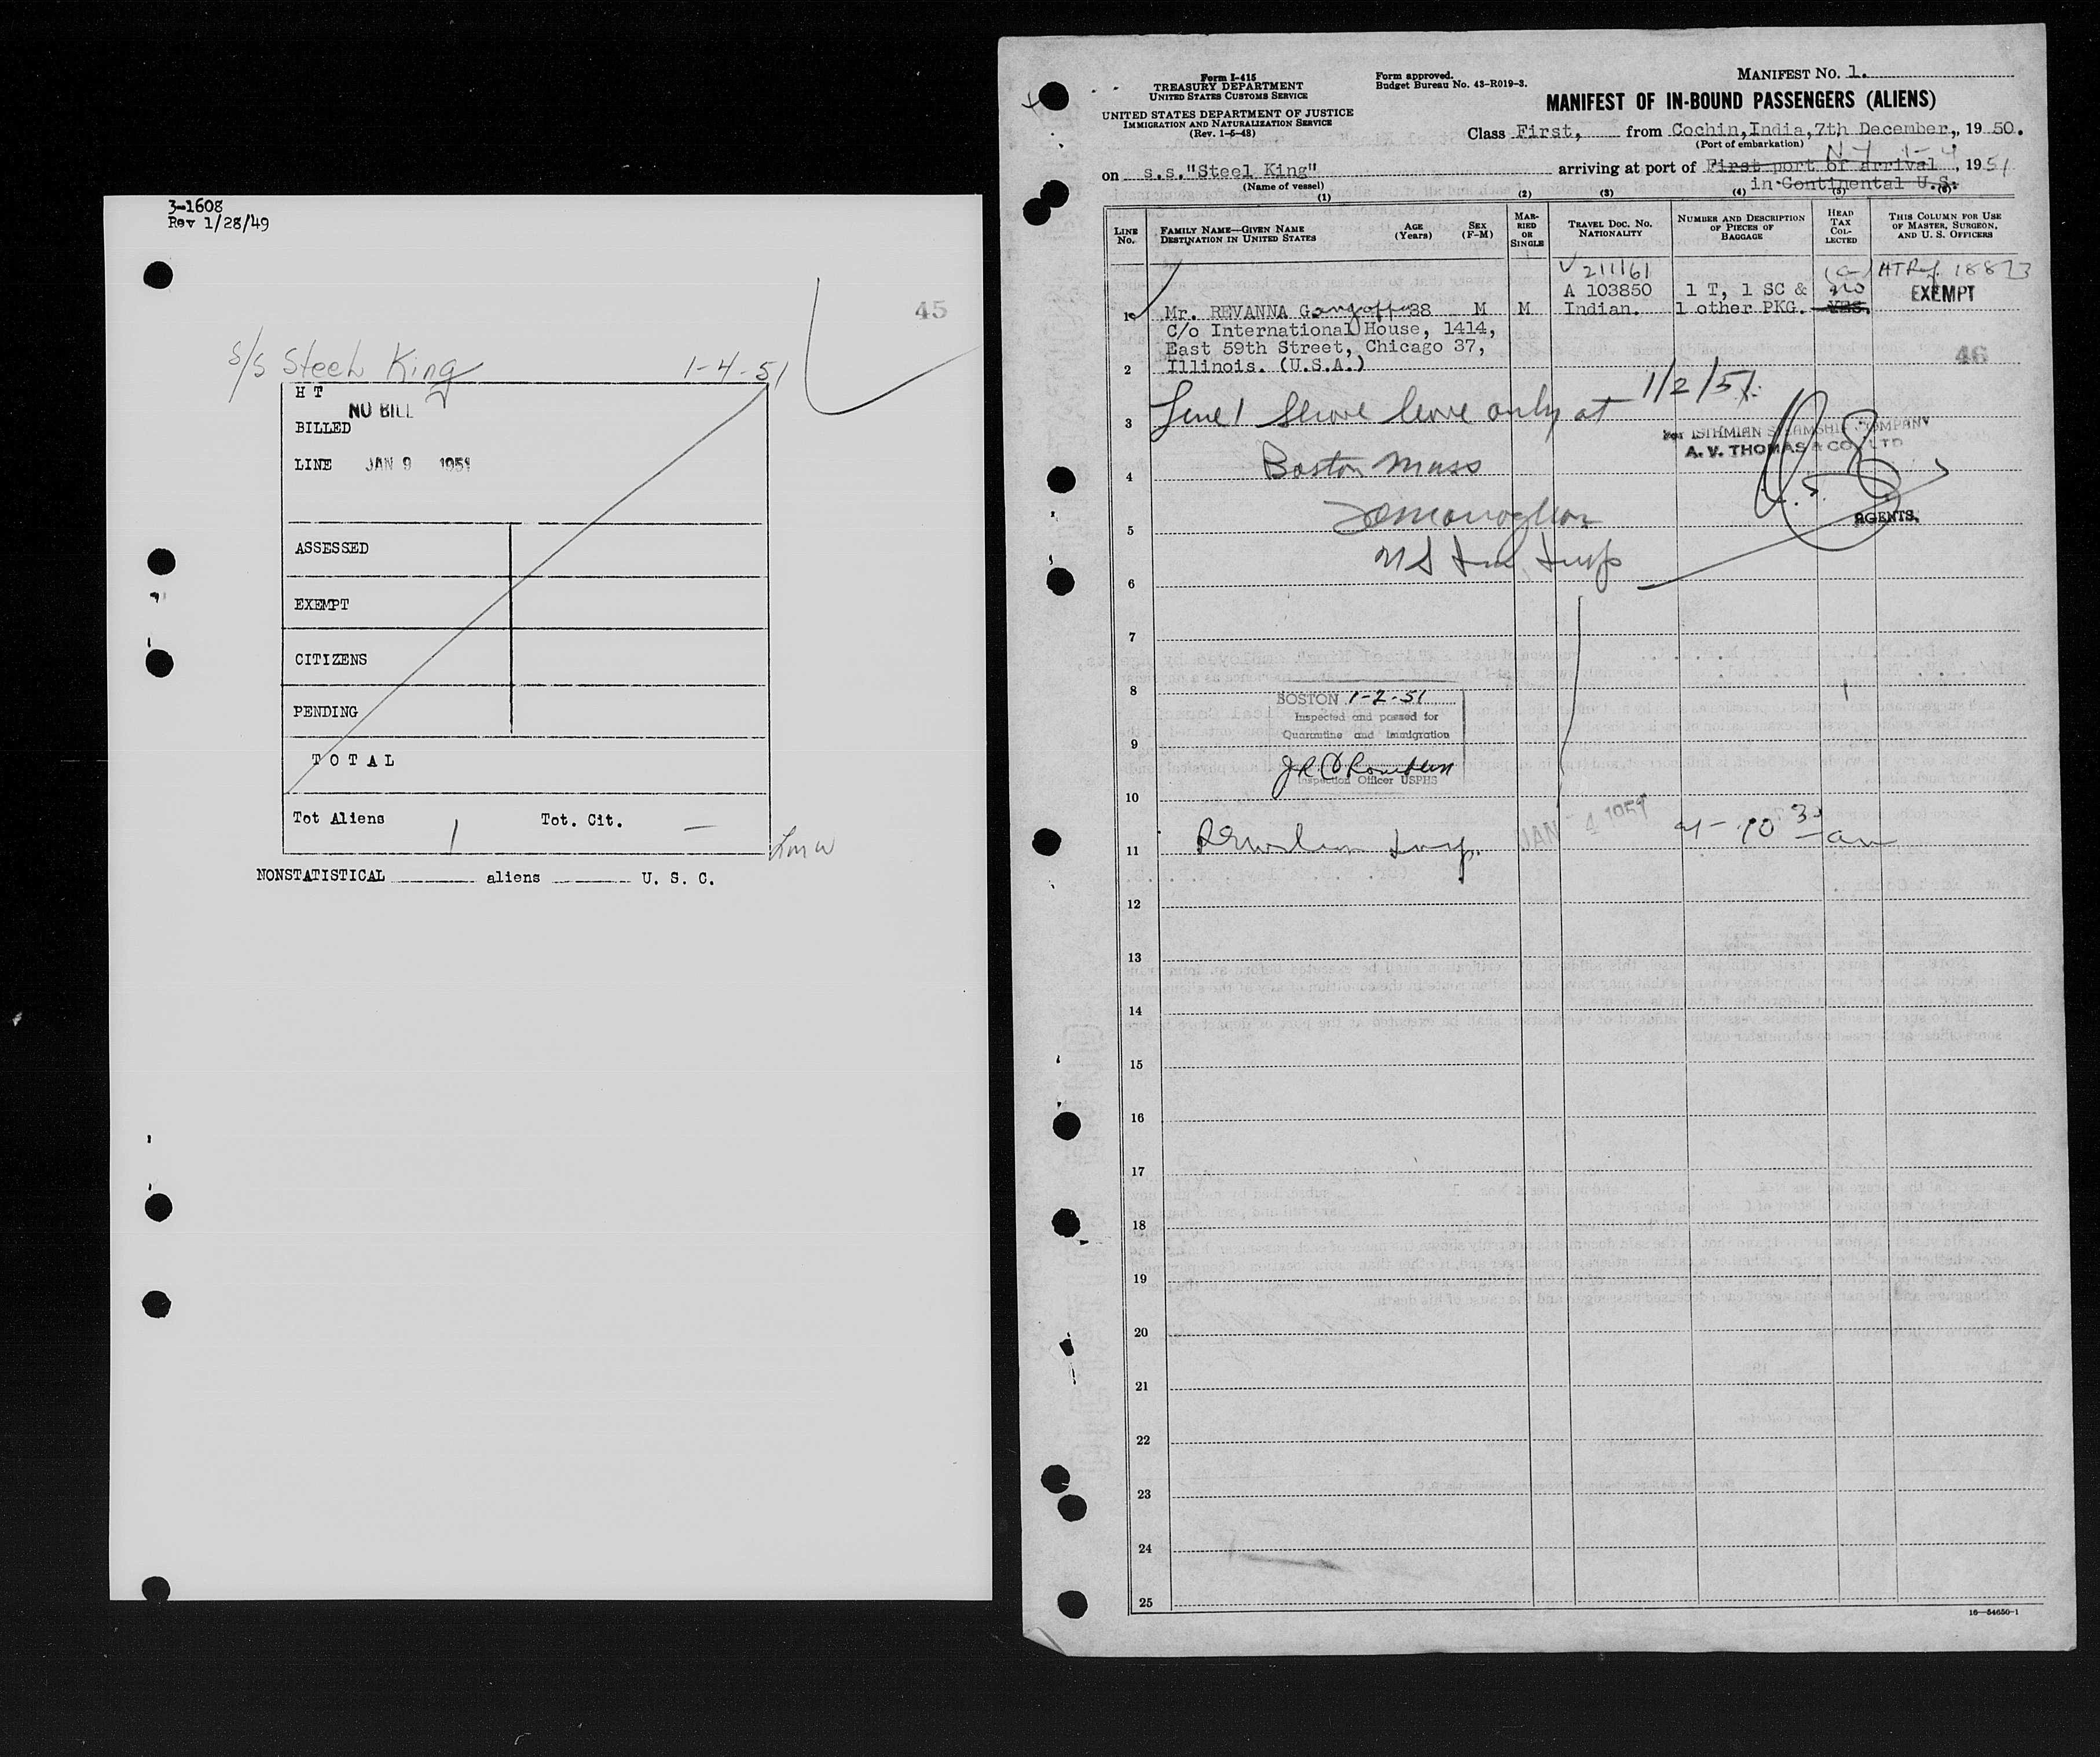 3-1608
Rev 1/28/49
45
S/S Steel King 1-4-51
H T
NO BILL
BILLED
LINE JAN 9 1951
ASSESSED
EXEMPT
CITIZENS
PENDING
TOTAL
Tot Aliens 1 Tot. Cit. —
NONSTATISTICAL aliens U. S. C.
Form I-415
TREASURY DEPARTMENT
UNITED STATES CUSTOMS SERVICE
UNITED STATES DEPARTMENT OF JUSTICE
IMMIGRATION AND NATURALIZATION SERVICE
(Rev. 1-5-48)
Form approved.
Budget Bureau No. 43-R019-3.
MANIFEST NO. 1.
MANIFEST OF IN-BOUND PASSENGERS (ALIENS)
Class First, from Cochin, India, 7th December, 1950.
(Port of embarkation)
N.Y. 1-4
on s.s."Steel King" arriving at port of First port of arrival, 1951
(Name of vessel) in Continental U.S.
(1) (2) (3) (4) (5) (6)
LINE NO.
FAMILY NAME—GIVEN NAME
DESTINATION IN UNITED STATES
AGE (Years)
SEX (F-M)
MARRIED OR SINGLE
TRAVEL DOC. NO. NATIONALITY
NUMBER AND DESCRIPTION OF PIECES OF BAGGAGE
HEAD TAX COLLECTED
THIS COLUMN FOR USE OF MASTER, SURGEON, AND U. S. OFFICERS
V 211161 HT Ref. 18873
A 103850 1 T, 1 SC & no EXEMPT
1 Mr. REVANNA Gangappa 38 M M Indian. 1 other PKG. YES.
C/o International House, 1414,
East 59th Street, Chicago 37, 46
2 Illinois. (U.S.A.)
1/2/51
3 Line 1 Shore leave only at
For ISTHMIAN STEAMSHIP COMPANY
A. V. THOMAS & CO. LTD
4 Boston Mass
AGENTS.
5
6 US Imm Insp
7
8
BOSTON 1-2-51
Inspected and passed for
9 Quarantine and Immigration
Inspection Officer USPHS
10
JAN - 4 1951
11 Insp. at 10 30 am
12
13
14
15
16
17
18
19
20
21
22
23
24
25
16—54650-1